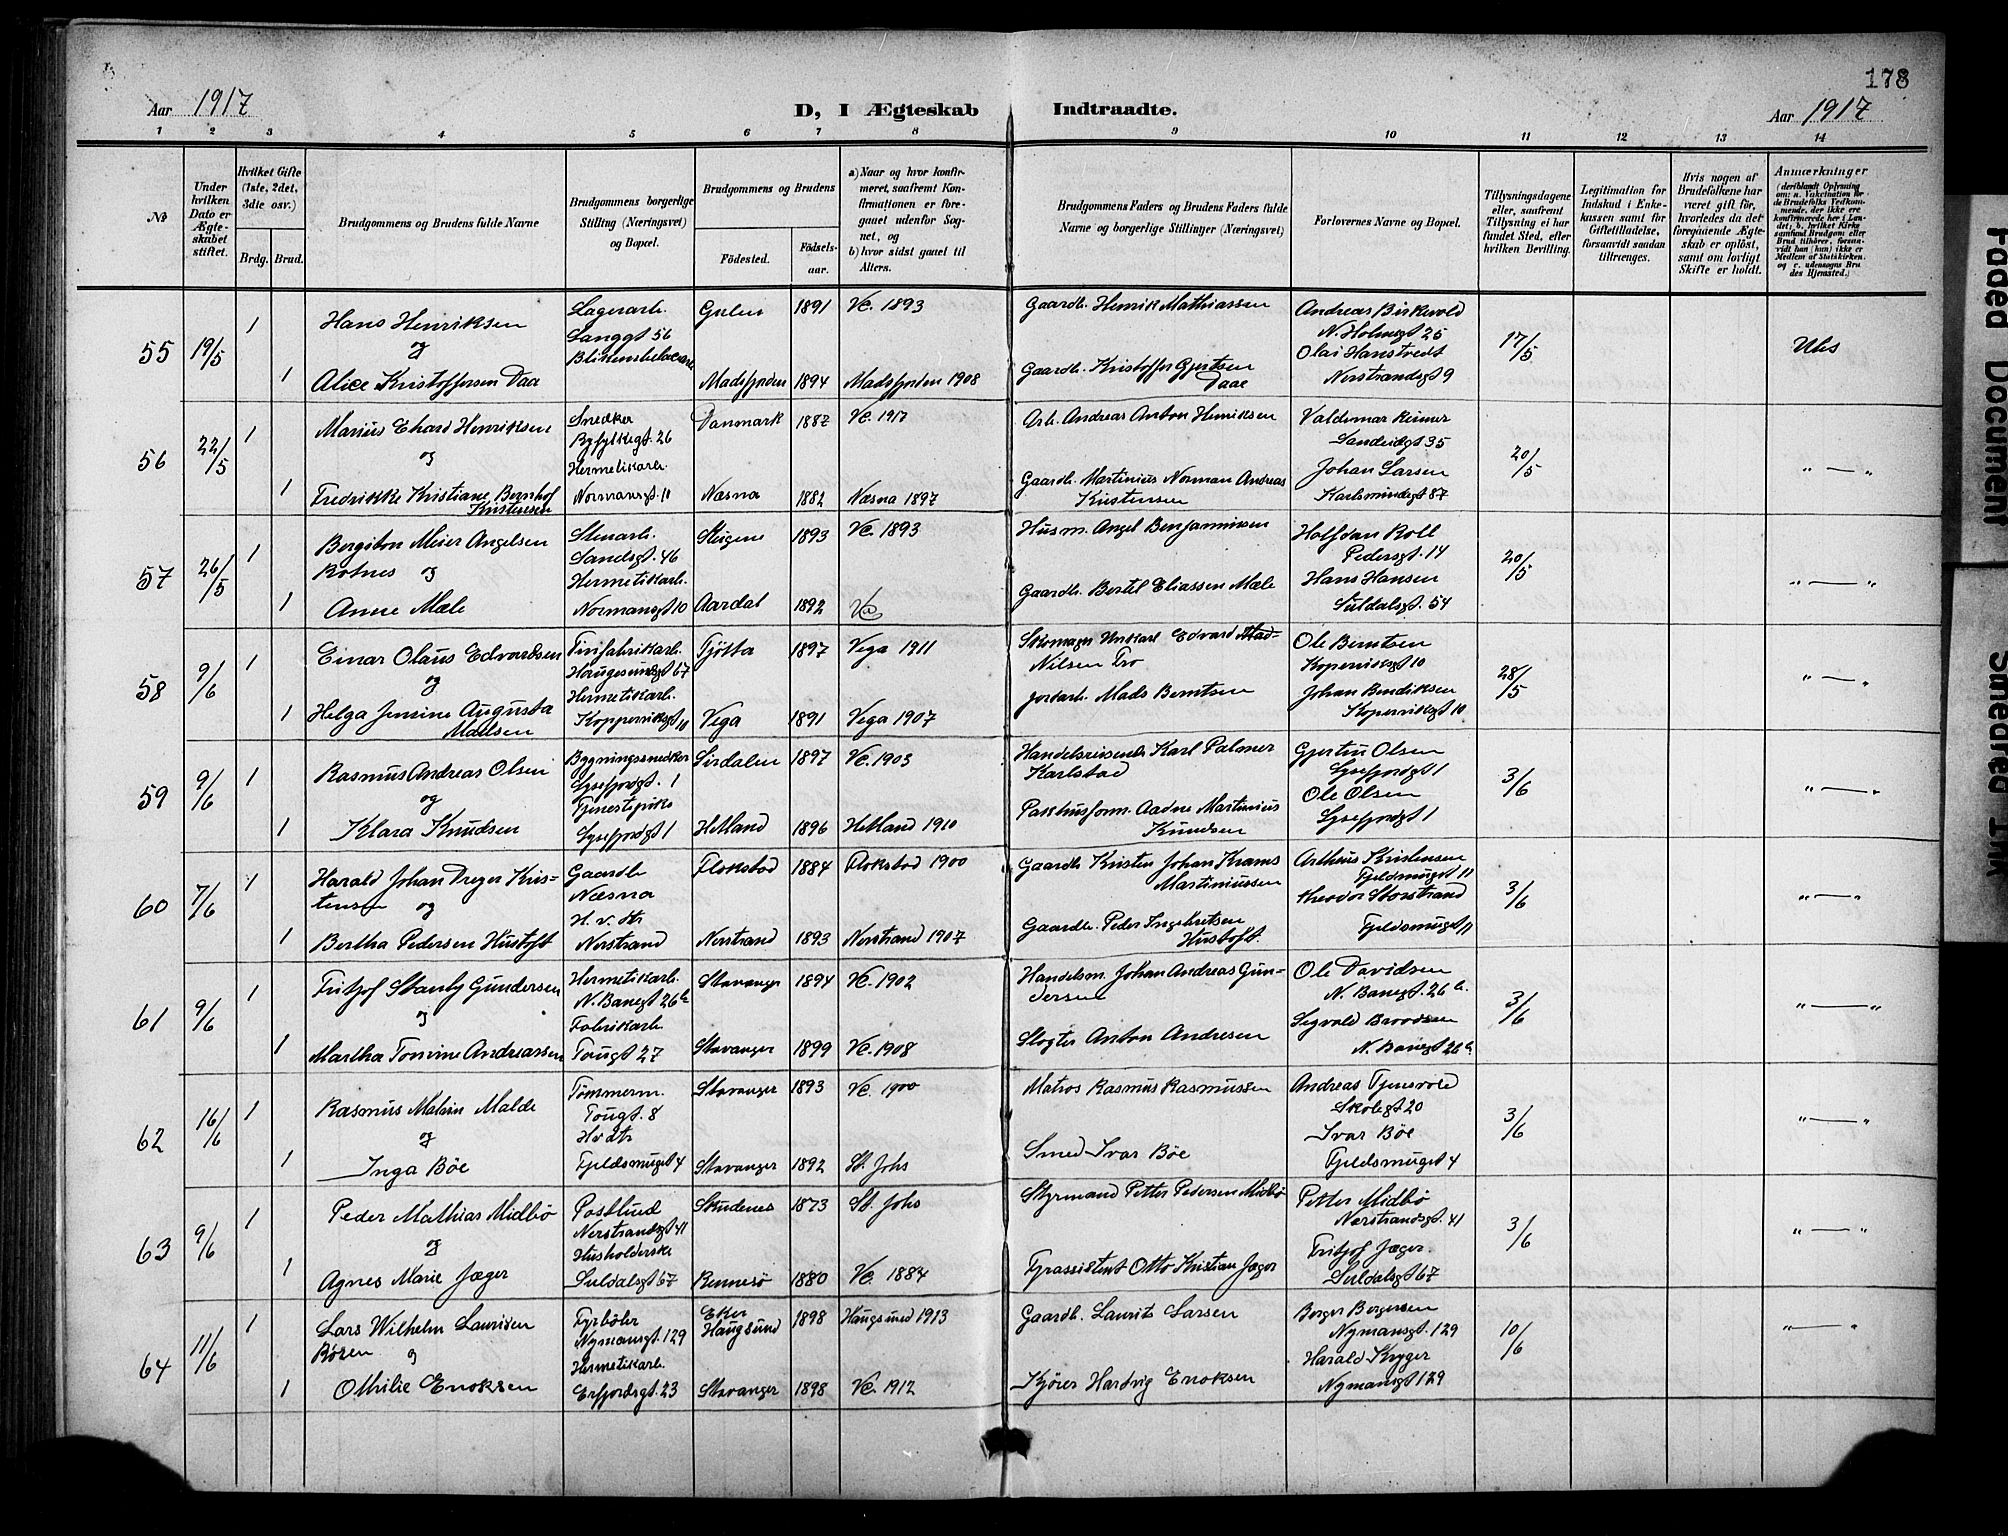 178
Aar 1917 D, I Ægteskab Indtraadte. Aar 1917
1 2 3 4 5 6 7 8 9 10 11 12 13 14
No
Under hvilken Dato er Ægteskabet stiftet.
Hvilket Gifte (1ste, 2det, 3die osv.)
Brdg. Brud.
Brudgommens og Brudens fulde Navne
Brudgommens borgerlige Stilling (Næringsvei) og Bopæl.
Brudgommens og Brudens
Fødested. Fødsels-aar.
a) Naar og hvor konfirmeret, saafremt Konfirmationen er foregaaet udenfor Sognet, og
b) hvor sidst gaaet til Alters.
Brudgommens Faders og Brudens Faders fulde Navne og borgerlige Stillinger (Næringsvei)
Forlovernes Navne og Bopæl.
Tillysningsdagene eller, saafremt Tillysning ei har fundet Sted, efter hvilken Bevilling.
Legitimation for Indskud i Enkekassen samt for Giftetilladelse, forsaavidt saadan tiltrænges.
Hvis nogen af Brudefolkene har været gift før, hvorledes da det foregaaende Ægteskab er opløst, samt om lovligt Skifte er holdt.
Anmærkninger
(deriblandt Oplysning om: a. Vakcination for de Brudefolks Vedkommende, der ikke ere konfirmerede her i Landet; b. hvilket Kirkesamfund Brudgom eller Brud tilhører, forsaavidt han (hun) ikke er Medlem af Statskirken, og c. udensogns Brudes Hjemsted.)
55 19/5 1 Hans Henriksen Lagerarb. Langgt 56 Gulen 1891 Vc. 1893 Gaardb. Henrik Mathiassen Andreas Birkevold N. Holmegt 25 17/5
og
1 Alice Kristoffersen Daa Madsfjorden 1894 Madsfjorden 1908 Gaardb. Kristoffer Gjertsen Daae Olai Hanstvedt Nerstrandsgt 9
56 22/5 1 Marius Ehard Henriksen Snedker Ryfylkegt. 26 Danmark 1887 Vc. 1917 Arb. Andreas Anton Henriksen Valdemar Reimer Sandeidgt 35 20/5 " — "
og
1 Fredrikke Kristiane Bernhof Kristensen Hermetikarb. Normansgt 11 Næsna 1882 Næsna 1897 Gaardb. Martinius Norman Andreas Kristensen Johan Larsen Karlsmindegt 87
57 26/5 1 Bergiton Meier Angelsen Rotnes og Stenarb. Sandsgt. 46 Steigene 1893 Vc. 1893 Husm. Angel Benjaminsen Halfdan Roll Pedersgt. 14 20/5 " — "
1 Anne Mæle Hermetikarb. Normansgt 10 Aardal 1892 Vc Gaardb. Bertil Eliassen Mæle Hans Hansen Suldalsgt. 54
58 9/6 1 Einar Olaus Edvardsen Haugesundsgt 67 Tjøtta 1897 Vega 1911 Skomager Edvard Nilsen Tro Ole Berntsen Kopervikgt 10 28/5 " — "
og
1 Helga Jensine Augusta Madsen Hermetikarb. Koppervikgt 10 Vega 1891 Vega 1907 Jordarb. Mads Berntsen Johan Bendiksen Kopervikgt 10
59 9/6 1 Rasmus Andreas Olsen Bygningssnedker Lysefjordgt. 1 Sirdalen 1897 Vc. 1903 Handelsreisende Karl Palmer Karlstad Gjertin Olsen Lysefjordgt 1 3/6 " — "
og
1 Klara Knudsen Tjenestepike Lysefjordgt 1 Hetland 1896 Hetland 1910 Pakhusform. Aadne Martinius Knudsen Ole Olsen Lysefjordgt 1
60 7/6 1 Harald Johan Dreyer Kristensen og Gaardb. Næsna Flakstad 1884 Flakstad 1900 Gaardb. Kristen Johan Krams Martiniussen Arthur Kristensen Fjeldsmuget 11 3/6 " — "
1 Bertha Pedersen Hustoft H. v. dtr Nerstrand Nerstrand 1893 Nerstrand 1907 Gaardb. Peder Ingebretsen Hustoft. Theodor Storstrand Fjeldsmuget 11
61 9/6 1 Fritjof Stanly Gundersen Hermetikarb. N. Banegt 26b Stavanger 1894 Vc. 1902 Handelsm. Johan Andreas Gundersen Ole Davidsen N. Banegt. 26b. 3/6 " — "
og
1 Martha Tomine Andreassen Fabrikarb. Tougt 27 Stavanger 1899 Vc. 1908 Slagter Anton Andresen Sigvald Broodsen N. Banegt 26b
62 16/6 1 Rasmus Malvin Malde Tømmerm. Tougt. 8 Stavanger 1893 Vc. 1900 Matros Rasmus Rasmussen Andreas Tjensvold Skolegt 20 3/6 " — "
og
1 Inga Bøe Hvdtr Fjeldsmuget 4 Stavanger 1892 St. Johs Smed Ivar Bøe Ivar Bøe Fjeldsmuget 4
63 9/6 1 Peder Mathias Midbø Postbud Nerstrandsgt 41 Skudenes 1873 St. Johs Styrmand Petter Pedersen Midbø Petter Midbø Nerstrandsgt. 41 3/6 " — "
og
1 Agnes Marie Jæger Husholderske Suldalsgt 67 Rennesø 1880 Vc. 1884 Fyrassistent Otto Kristian Jæger Fritjof Jæger. Suldalsgt 67
64 11/6 1 Lars Wilhelm Lauritsen Røren og Fyrbøter Nymansgt. 129 Eker Haugsund 1898 Haugsund 1913 Gaardb. Laurits Larsen Berger Bergersen Nymansgt. 129 10/6 " — "
1 Othilie Enoksen Hermetikarb. Erfjordsgt. 23 Stavanger 1898 Vc. 1912 Kjører Hardvig Enoksen Harald Kryger Nymansgt 129
Faded Document
Smeared Ink